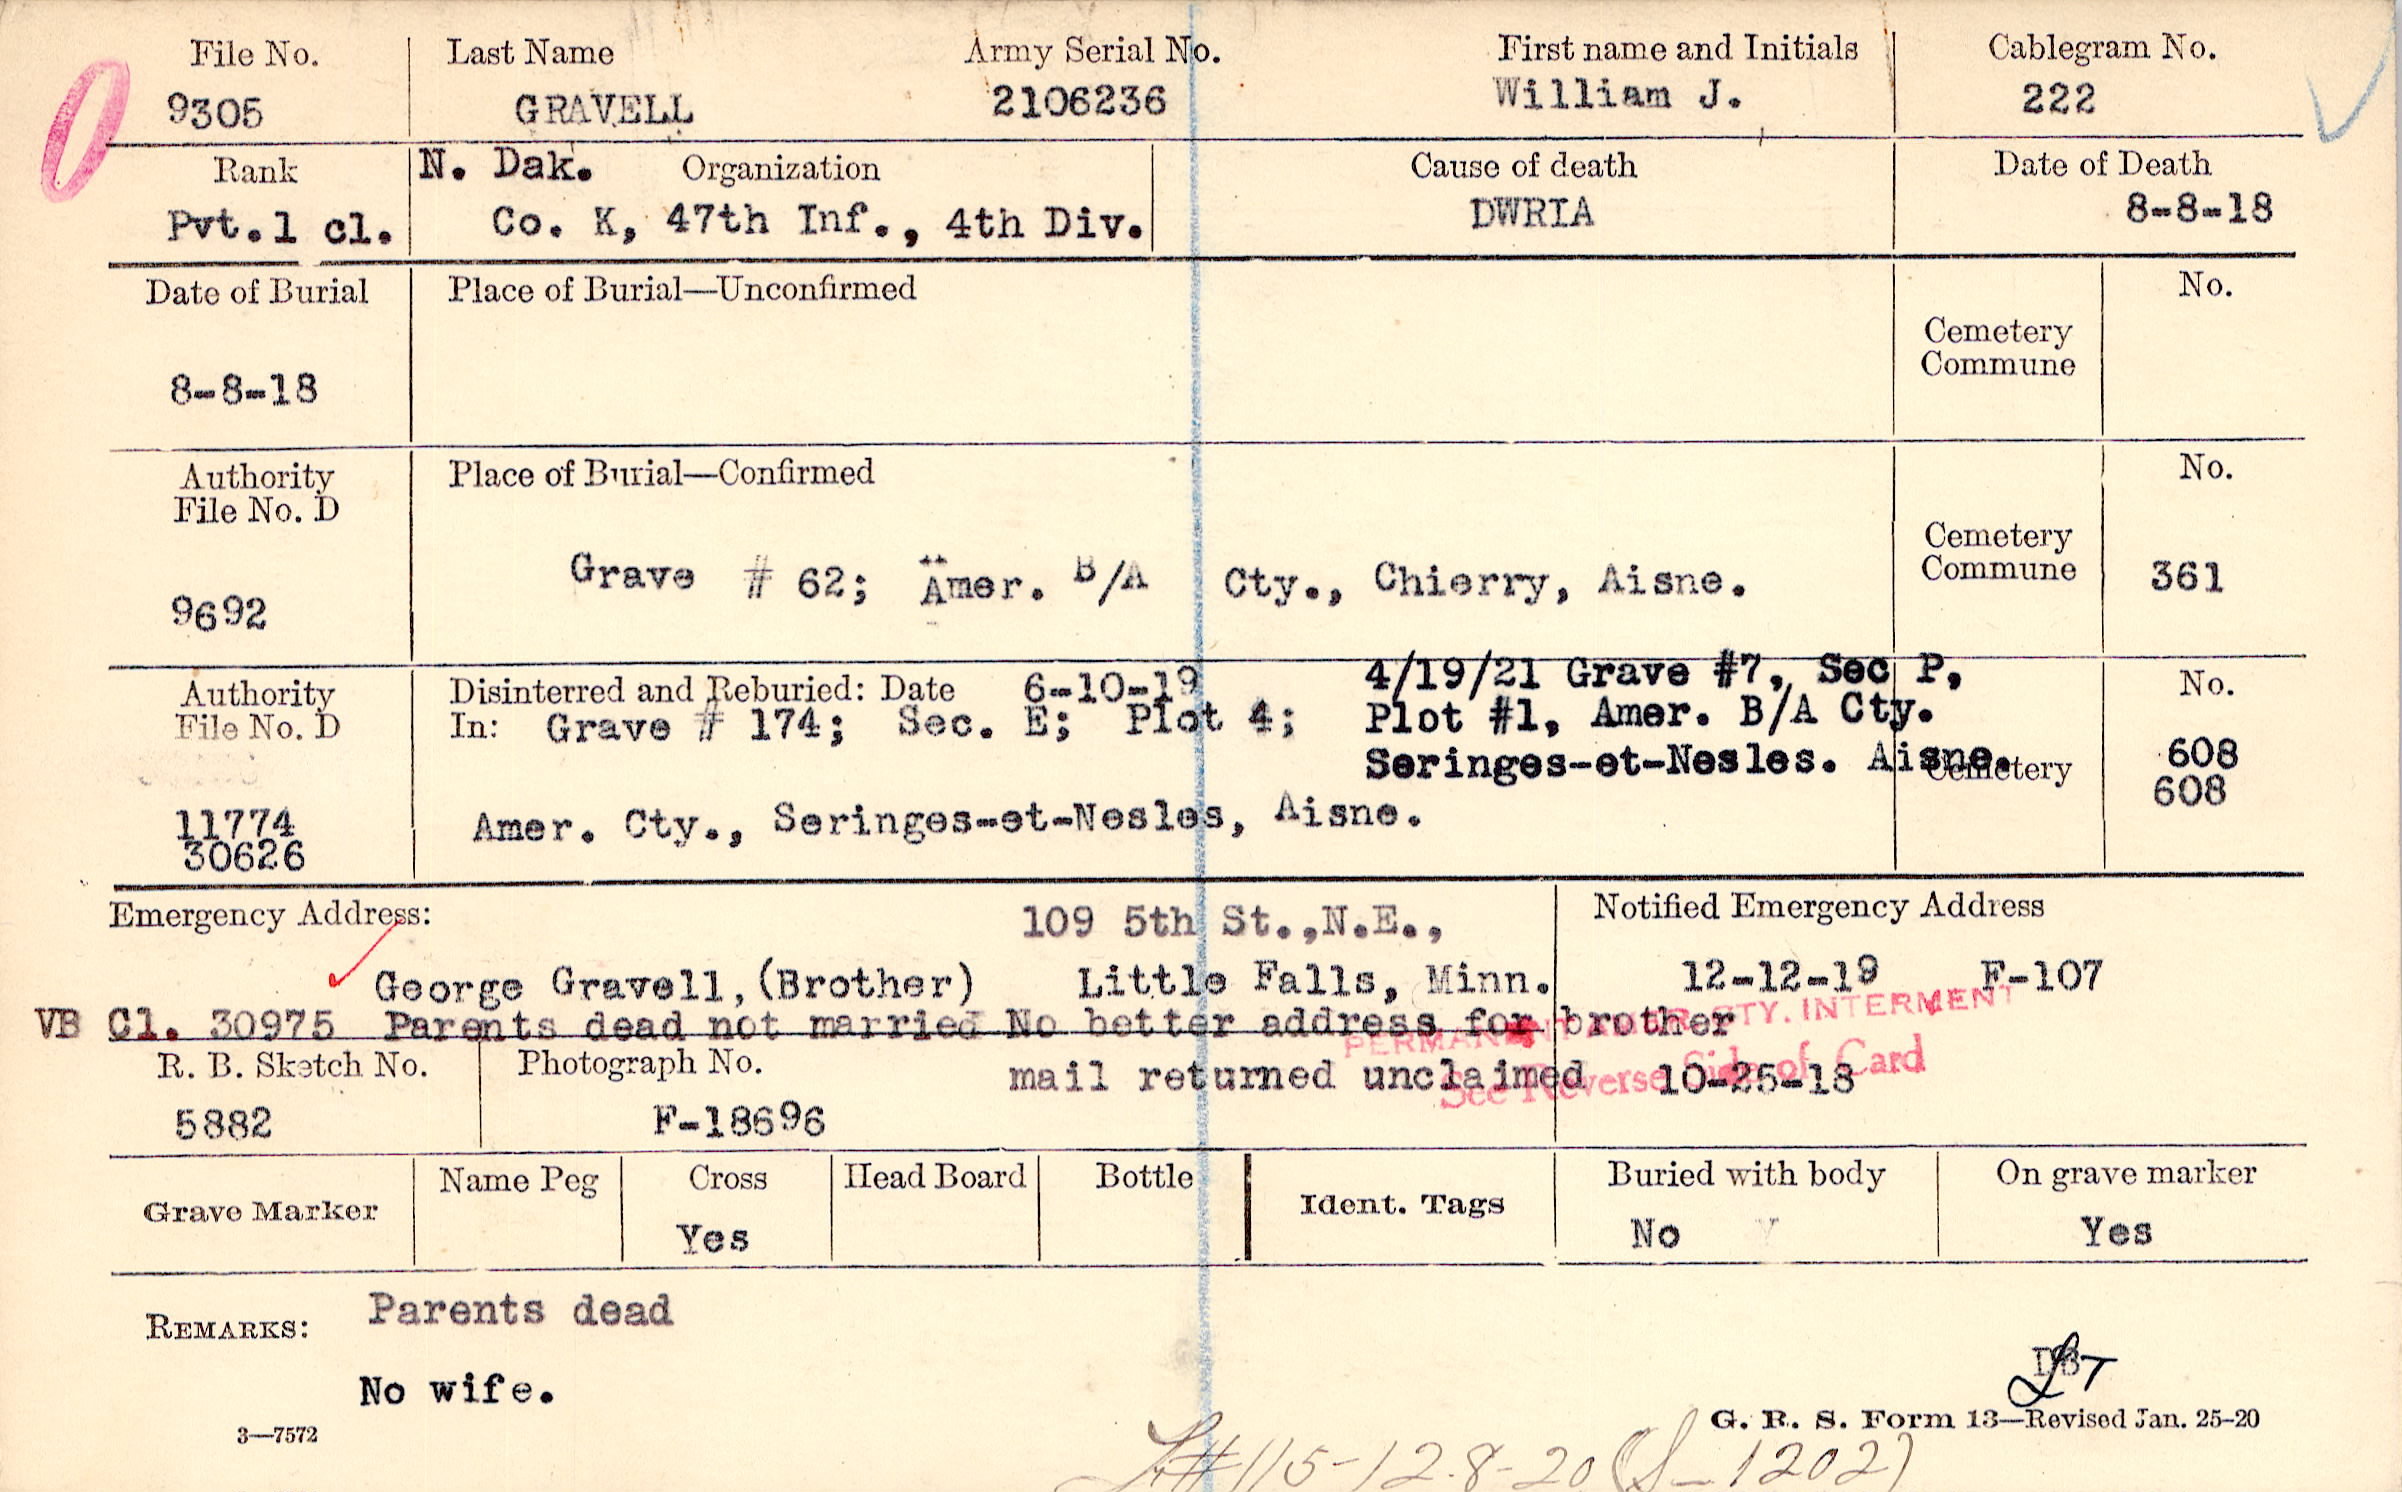 File No. Last Name Army Serial No. First name and Initials Cablegram No.
9305 GRAVELL 2106236 William J. 222
Rank N. Dak. Organization Cause of death Date of Death
Pvt.1 cl. Co. K, 47th Inf., 4th Div. DWRIA 8-8-18
Date of Burial Place of Burial—Unconfirmed No.
Cemetery
Commune
8-8-18
Authority Place of Burial—Confirmed No.
File No. D
Cemetery
Commune
Grave # 62; Amer. B/A Cty., Chierry, Aisne. 361
9692
Authority Disinterred and Reburied: Date 6-10-19 4/19/21 Grave #7, Sec P, No.
File No. D In: Grave # 174; Sec. E; Plot 4; Plot #1, Amer. B/A Cty.
Seringes-et-Nesles. Aisne. Cemetery 608
608
11774 Amer. Cty., Seringes-et-Nesles, Aisne.
30626
Emergency Address: 109 5th St.,N.E., Notified Emergency Address
George Gravell,(Brother) Little Falls, Minn. 12-12-19 F-107
VB Cl. 30975 Parents dead not married No better address for brother
PERMANENT AMER. CTY. INTERMENT
R. B. Sketch No. Photograph No. mail returned unclaimed 10-25-18
See Reverse Side of Card
5882 F-18696
Grave Marker Name Peg Cross Head Board Bottle Ident. Tags Buried with body On grave marker
Yes No Yes
REMARKS: Parents dead
No wife.
3—7572
G. R. S. Form 13—Revised Jan. 25-20
#115-12-8-20 (S-1202)